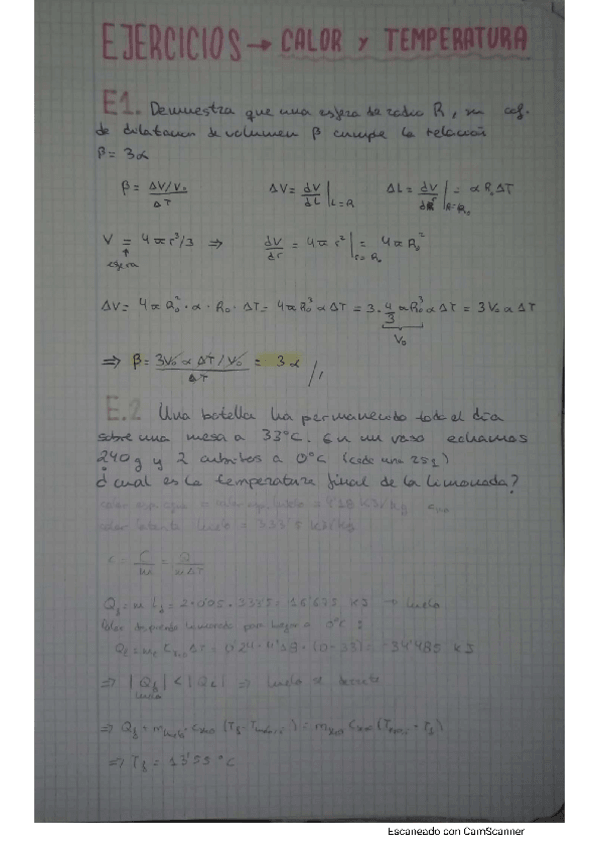 EJERCICIOS → CALOR Y TEMPERATURA
E1. Demuestra que una esfera de radio R, su cof.
de dilatacion de volumen β cumple la relación
β = 3α
β = ΔV/V₀ / ΔT    ΔV = dV/dL |L=R    ΔL = dV/dR |R=R₀ = α R₀ ΔT
V = 4πr³/3 ⇒ dV/dr = 4πr² |r=R₀ = 4πR₀²
↑
esfera
ΔV = 4πR₀² · α · R₀ · ΔT = 4πR₀³ α ΔT = 3 · 4/3 πR₀³ α ΔT = 3V₀ α ΔT
V₀
⇒ β = 3V₀ α ΔT / V₀ / ΔT = 3α //
E.2 Una botella ha permanecido todo el día
sobre una mesa a 33°C. En un vaso echamos
240g y 2 cubitos a 0°C (cada uno 25g)
¿cual es la temperatura final de la limonada?
calor latente hielo = 333'5 kJ/kg
c = C/m = Q/mΔT
Qf = m Lf = 2·0'05·333'5 = 16'675 kJ → hielo
limonada para llegar a 0°C:
ΔT = 0'24·4'18·(0-33) = -34'485 kJ
⇒ |Qf| < |Qc| ⇒ hielo se derrite
hielo
⇒ Tf = 13'55 °C
Escaneado con CamScanner